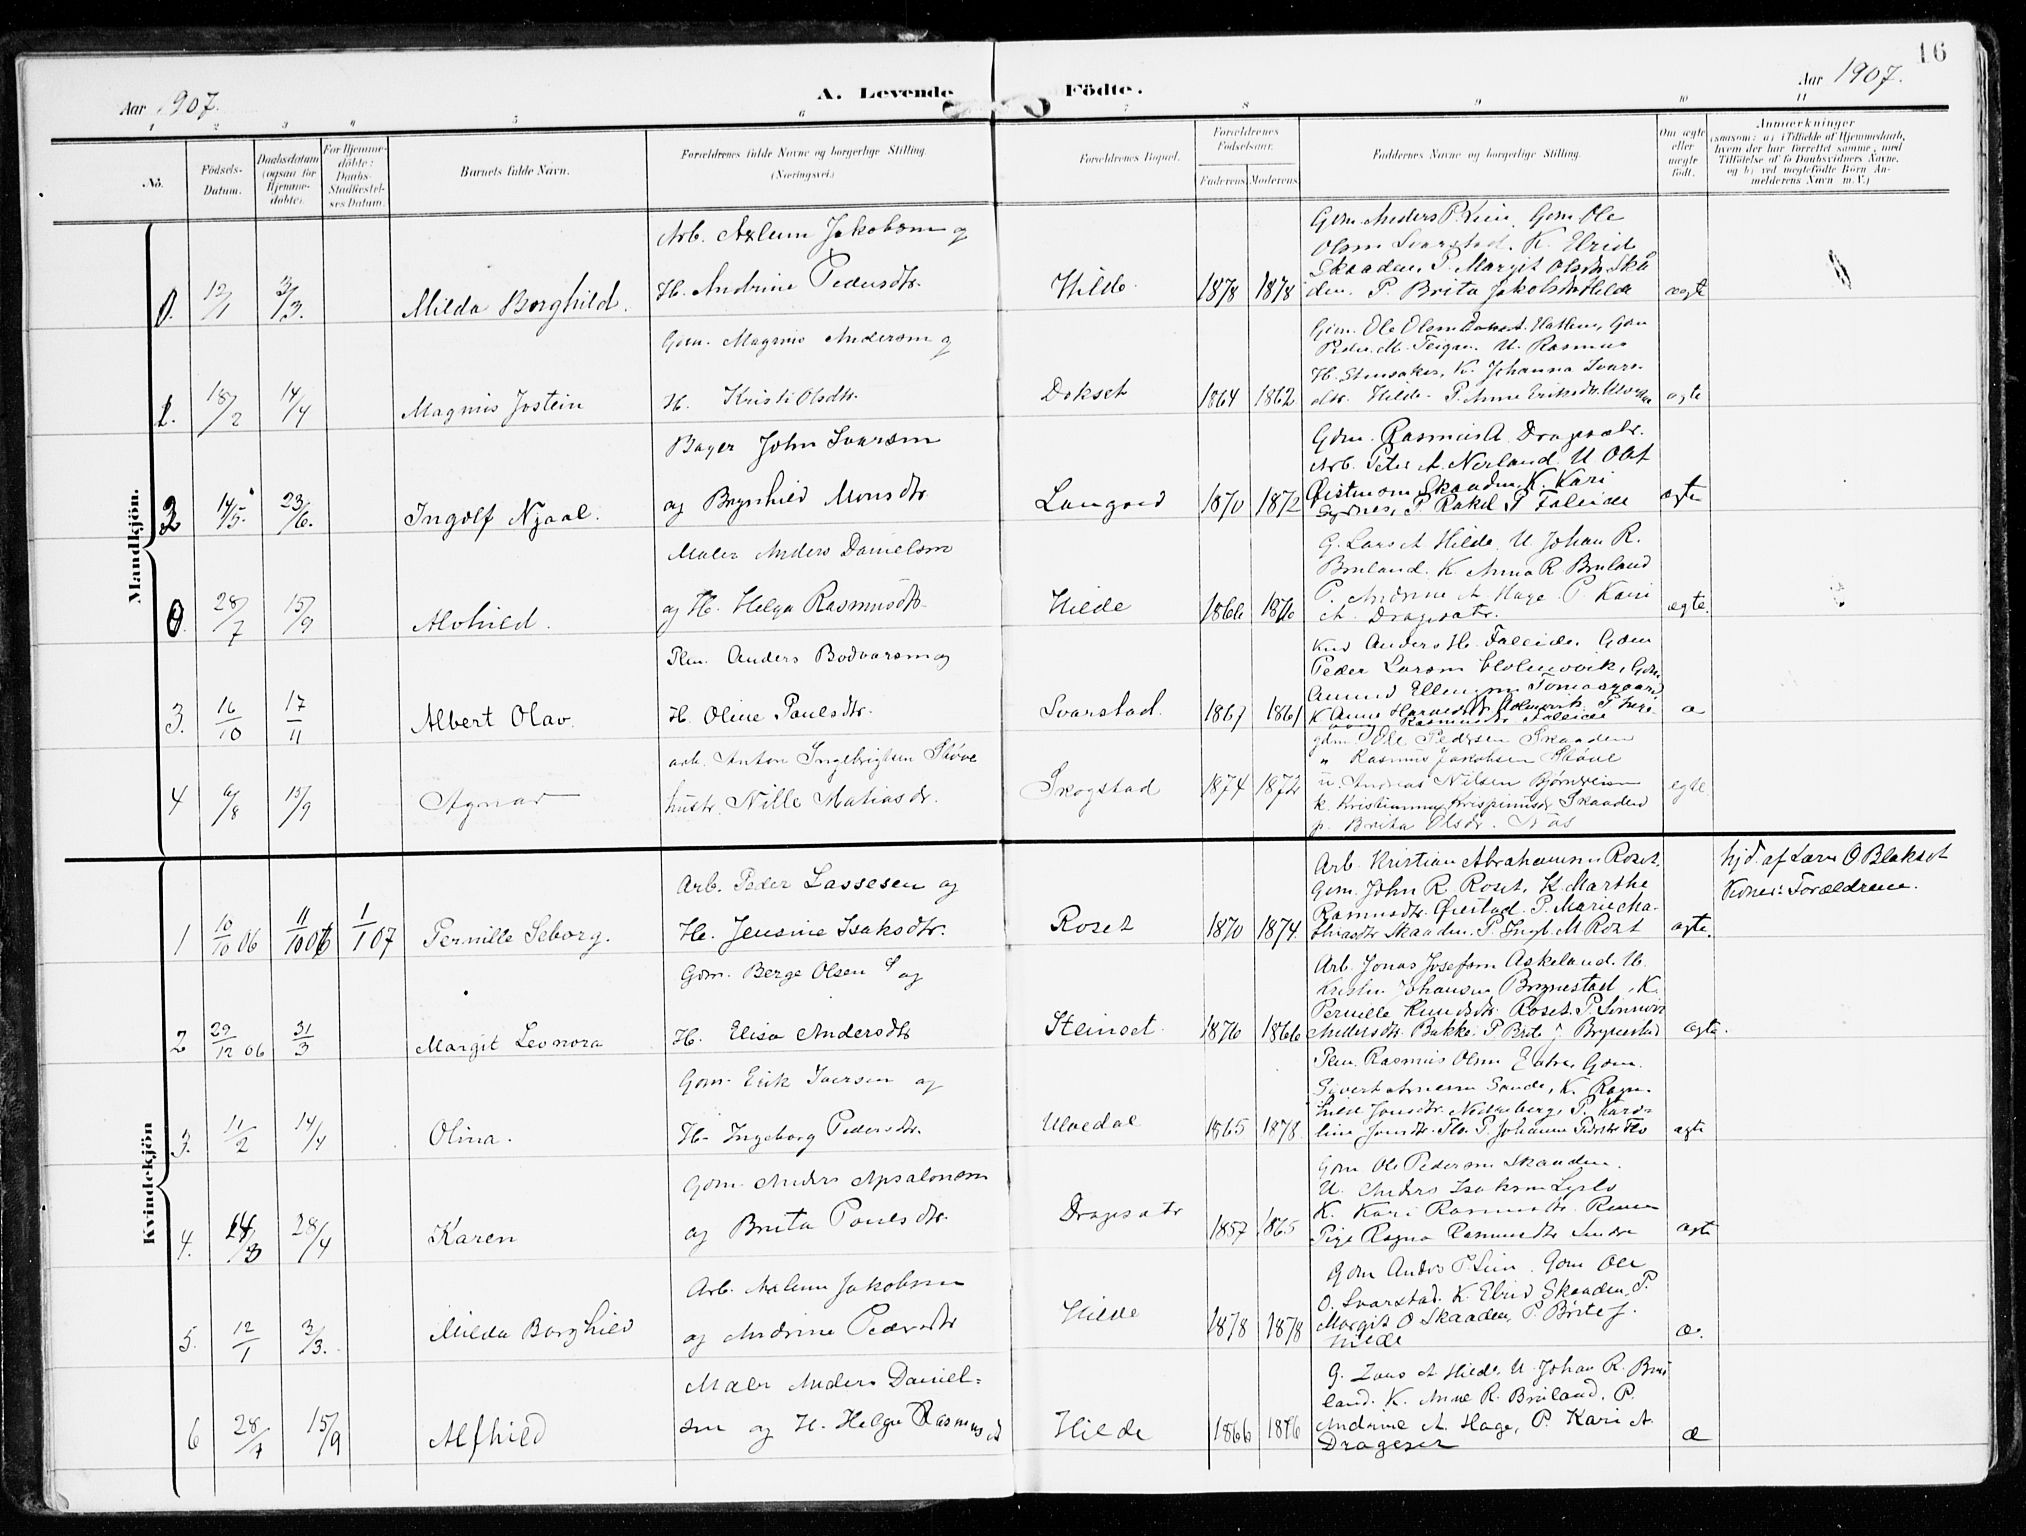 16
Aar 1907.
A. Levende
Födte.
Aar 1907.
1 2 3 4 5 6 7 8 9 10 11
No.
Födsels-Datum.
Daabsdatum (ogsaa for Hjemmedöbte).
For Hjemmedöbte: Daabs-Stadfæstelses Datum.
Barnets fulde Navn.
Forældrenes fulde Navne og borgerlige Stilling.
(Næringsvei.)
Forældrenes Bopæl.
Forældrenes Födselsaar.
Faderens Moderens
Faddernes Navne og borgerlige Stilling.
Om ægte eller uægte födt.
Anmærkninger
(saasom: a) i Tilfælde af Hjemmedaab, hvem der har forrettet samme, med Tilföielse af to Daabsvidners Navne, og b) ved uægtefödte Börn Anmelderens Navn m. V.)
Mandkjön.
0. 12/1 3/3. Milda Borghild.
Arb. Axlem Jakobsen og
H. Andrine Pedersdtr.
Hilde 1878 1878
Gdm. Anders P. Lein, Gdm Ole
Olsen Svarstad. K. Elrid
Skaaden, P. Margit Olsdtr. Skaa
den. P. Brita Jakobsdtr. Hilde
ægte
18/2 14/4 Magnus Jostein
Gdm. Magnus Andersen og
H. Kristi Olsdtr.
Dokset 1864 1862
Gdm. Ole Olsen Hatlem, Gdm
Peder M. Teigen. U. Rasmus
H. Stensaker, K. Johanna Ivars
dtr. Hilde. P. Anne Eriksdtr.
ægte
2 14/5 23/6. Ingolf Njaal.
Bager John Ivarsen
og Brynhild Monsdtr.
Langved 1870 1872
Gdm. Rasmus A. Dragesætr.
Arb. Peter A. Nerland. U Olaf
Øistensen Skaaden, K. Kari
Sydnes, P Rakel P Faleide
ægte
0. 28/7 15/9 Alvhild.
Maler Anders Danielsen
og H. Helga Rasmusdtr.
Hilde 1866 1876
G. Lars A Hilde. U Johan R.
Bruland. K Anna R Bruland
P. Andrine A Hage. P. Kari
A. Dragesætr.
ægte.
3. 16/10 17/11 Albert Olav.
Plm. Anders Bodvarsen og
H. Oline Paulsdtr.
Svarstad. 1867 1861
Anders H. Faleide, Gdm
Peder Larsen Holmevik, Gdm.
Amund Ellingsen Tomasgaard,
Rasmusdtr Faleide
æ
4 6/8 15/9 Agnar
arb. Anton Ingebrigtsen Støve
hustr. Nille Matiasdr.
Skogstad 1874 1872
gdm. Ole Pedersen Skaaden
" Rasmus Jakobsen Støve
u. Andreas Nilsen Bjørnheim
k. Kristianna Krispinusdr Skaaden
p. Brita Olsdr. Nos
egte
Kvindekjön
1 10/10 06 11/10 06 1/1 07 Pernille Seborg.
Arb. Peder Lassesen og
H. Jensine Isaksdtr.
Roset 1870 1874.
Arb. Kristian Abrahamsen Roset.
Gdm. John R. Roset, K. Marthe
Rasmusdtr. Øvrestad. P. Marie Ma-
thiasdtr. Skaaden. P Ingb. M Roset
ægte.
hjd. af Lærer O Blakset
Vidner: Forældrene.
2 29/12 06 31/3 Margit Leonora
Gdm. Berge Olsen S og
H. Elisa Andersdtr
Steinset. 1876 1866
Arb. Jonas Josefsen Askeland. U.
Kristen Johansen Brynestad, K.
Pernille Knudsdtr. Roset. P. Synnøve
Andersdtr. Bakke. P Brite J Brynestad
ægte.
3. 11/2 14/4 Olina.
Gdm. Erik Iversen og
H. Ingeborg Pedersdtr.
Ulvedal 1865 1878.
Plm Rasmus Olsen Gdm.
Sivert Arnesen Sande, K. Ragn-
hild Jonsdtr. Nedreberg, P. Karo-
line Jonsdtr. Flo. P Johanne Pedersdtr Flo
ægte
4. 14/3 28/4 Karen
Gdm. Anders Apsalonsen
og Brita Paulsdtr.
Dragesætr 1857 1865
Gdm Ole Pedersen Skaaden.
U. Anders Isaksen Lyslo
K. Kari Rasmusdtr.
Pige Ragna Rasmusdtr Sindre
ægte
5. 12/1 3/3. Milda Borghild
Arb. Axlem Jakobsen
og Andrine Pedersdtr
Hilde 1878 1878
Gdm Anders P. Lein. Gdm Ole
O. Svarstad. K. Elrid Skaaden, P.
Margit O Skaaden, P. Brite J.
Hilde
æ.
6 28/7 15/9 Alfhild
Maler Anders Daniel-
sen og H. Helga Rasmusd
Hilde 1866 1876
G. Lars A Hilde, U Johan R. Bru
land. K. Anne R. Bruland. P.
Andrine A. Hage, P. Kari A.
Dragesær
æ